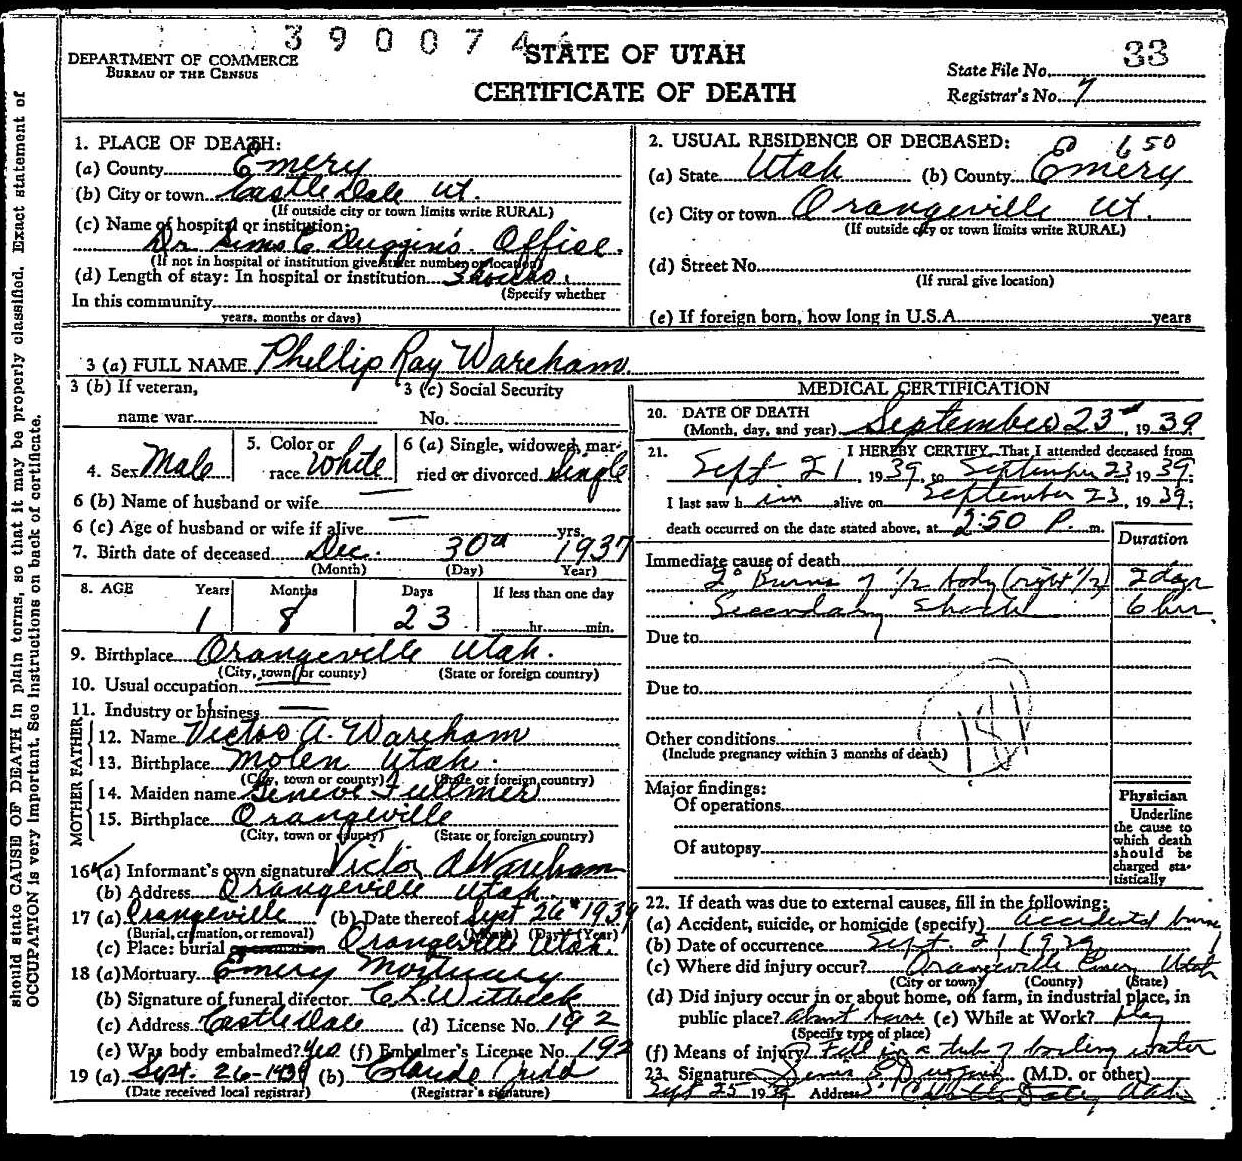 should state CAUSE OF DEATH in plain terms, so that it may be properly classified. Exact statement of
OCCUPATION is very important. See instructions on back of certificate.
3900744
DEPARTMENT OF COMMERCE
BUREAU OF THE CENSUS
STATE OF UTAH
CERTIFICATE OF DEATH
State File No. 33
Registrar's No. 7
1. PLACE OF DEATH:
(a) County Emery
(b) City or town Castle Dale Ut.
(If outside city or town limits write RURAL)
(c) Name of hospital or institution:
Dr Sims E Duggin's Office.
(If not in hospital or institution give street number or location)
(d) Length of stay: In hospital or institution 3 hours.
(Specify whether
In this community
years, months or days)
2. USUAL RESIDENCE OF DECEASED: 650
(a) State Utah (b) County Emery
(c) City or town Orangeville Ut.
(If outside city or town limits write RURAL)
(d) Street No.
(If rural give location)
(e) If foreign born, how long in U.S.A. years
3 (a) FULL NAME Phillip Ray Wareham
3 (b) If veteran,
name war
3 (c) Social Security
No.
4. Sex Male
5. Color or
race White
6 (a) Single, widowed, mar-
ried or divorced Single
6 (b) Name of husband or wife —
6 (c) Age of husband or wife if alive — yrs.
7. Birth date of deceased Dec. 30th 1937
(Month) (Day) (Year)
8. AGE Years Months Days If less than one day
1 8 23 hr. min.
9. Birthplace Orangeville Utah.
(City, town or county) (State or foreign country)
10. Usual occupation —
11. Industry or business —
FATHER
12. Name Victor A. Wareham
13. Birthplace Molen Utah.
(City, town or county) (State or foreign country)
MOTHER
14. Maiden name Geneve Fullmer
15. Birthplace Orangeville
(City, town or county) (State or foreign country)
16 (a) Informant's own signature Victor A Wareham
(b) Address Orangeville Utah.
17 (a) Orangeville (b) Date thereof Sept 26th 1939
(Burial, cremation, or removal) (Month) (Day) (Year)
(c) Place: burial Orangeville Utah.
18 (a) Mortuary Emery Mortuary
(b) Signature of funeral director C L Witbeck
(c) Address Castle Dale (d) License No. 192
(e) Was body embalmed? Yes (f) Embalmer's License No. 192
19 (a) Sept. 26-1939 (b) Claude Judd
(Date received local registrar) (Registrar's signature)
MEDICAL CERTIFICATION
20. DATE OF DEATH
(Month, day, and year) September 23rd, 1939
21. I HEREBY CERTIFY, That I attended deceased from
Sept 21, 1939, to September 23, 1939;
I last saw h im alive on September 23, 1939;
death occurred on the date stated above, at 2:50 P. m.
Duration
Immediate cause of death
2° Burns of 1/2 body (right 1/2) 2 days
Secondary Shock 6 hrs
Due to
Due to
181
Other conditions
(Include pregnancy within 3 months of death)
Major findings:
Of operations
Of autopsy
Physician
Underline
the cause to
which death
should be
charged sta-
tistically
22. If death was due to external causes, fill in the following:
(a) Accident, suicide, or homicide (specify) Accidental burns
(b) Date of occurrence Sept. 21 1939
(c) Where did injury occur? Orangeville Emery Utah
(City or town) (County) (State)
(d) Did injury occur in or about home, on farm, in industrial place, in
public place? about home (e) While at Work? play
(Specify type of place)
(f) Means of injury? Fell in a tub of boiling water
23. Signature Sims E. Duggins (M.D. or other)
Sept 25 1939 Address Castle Dale, Utah